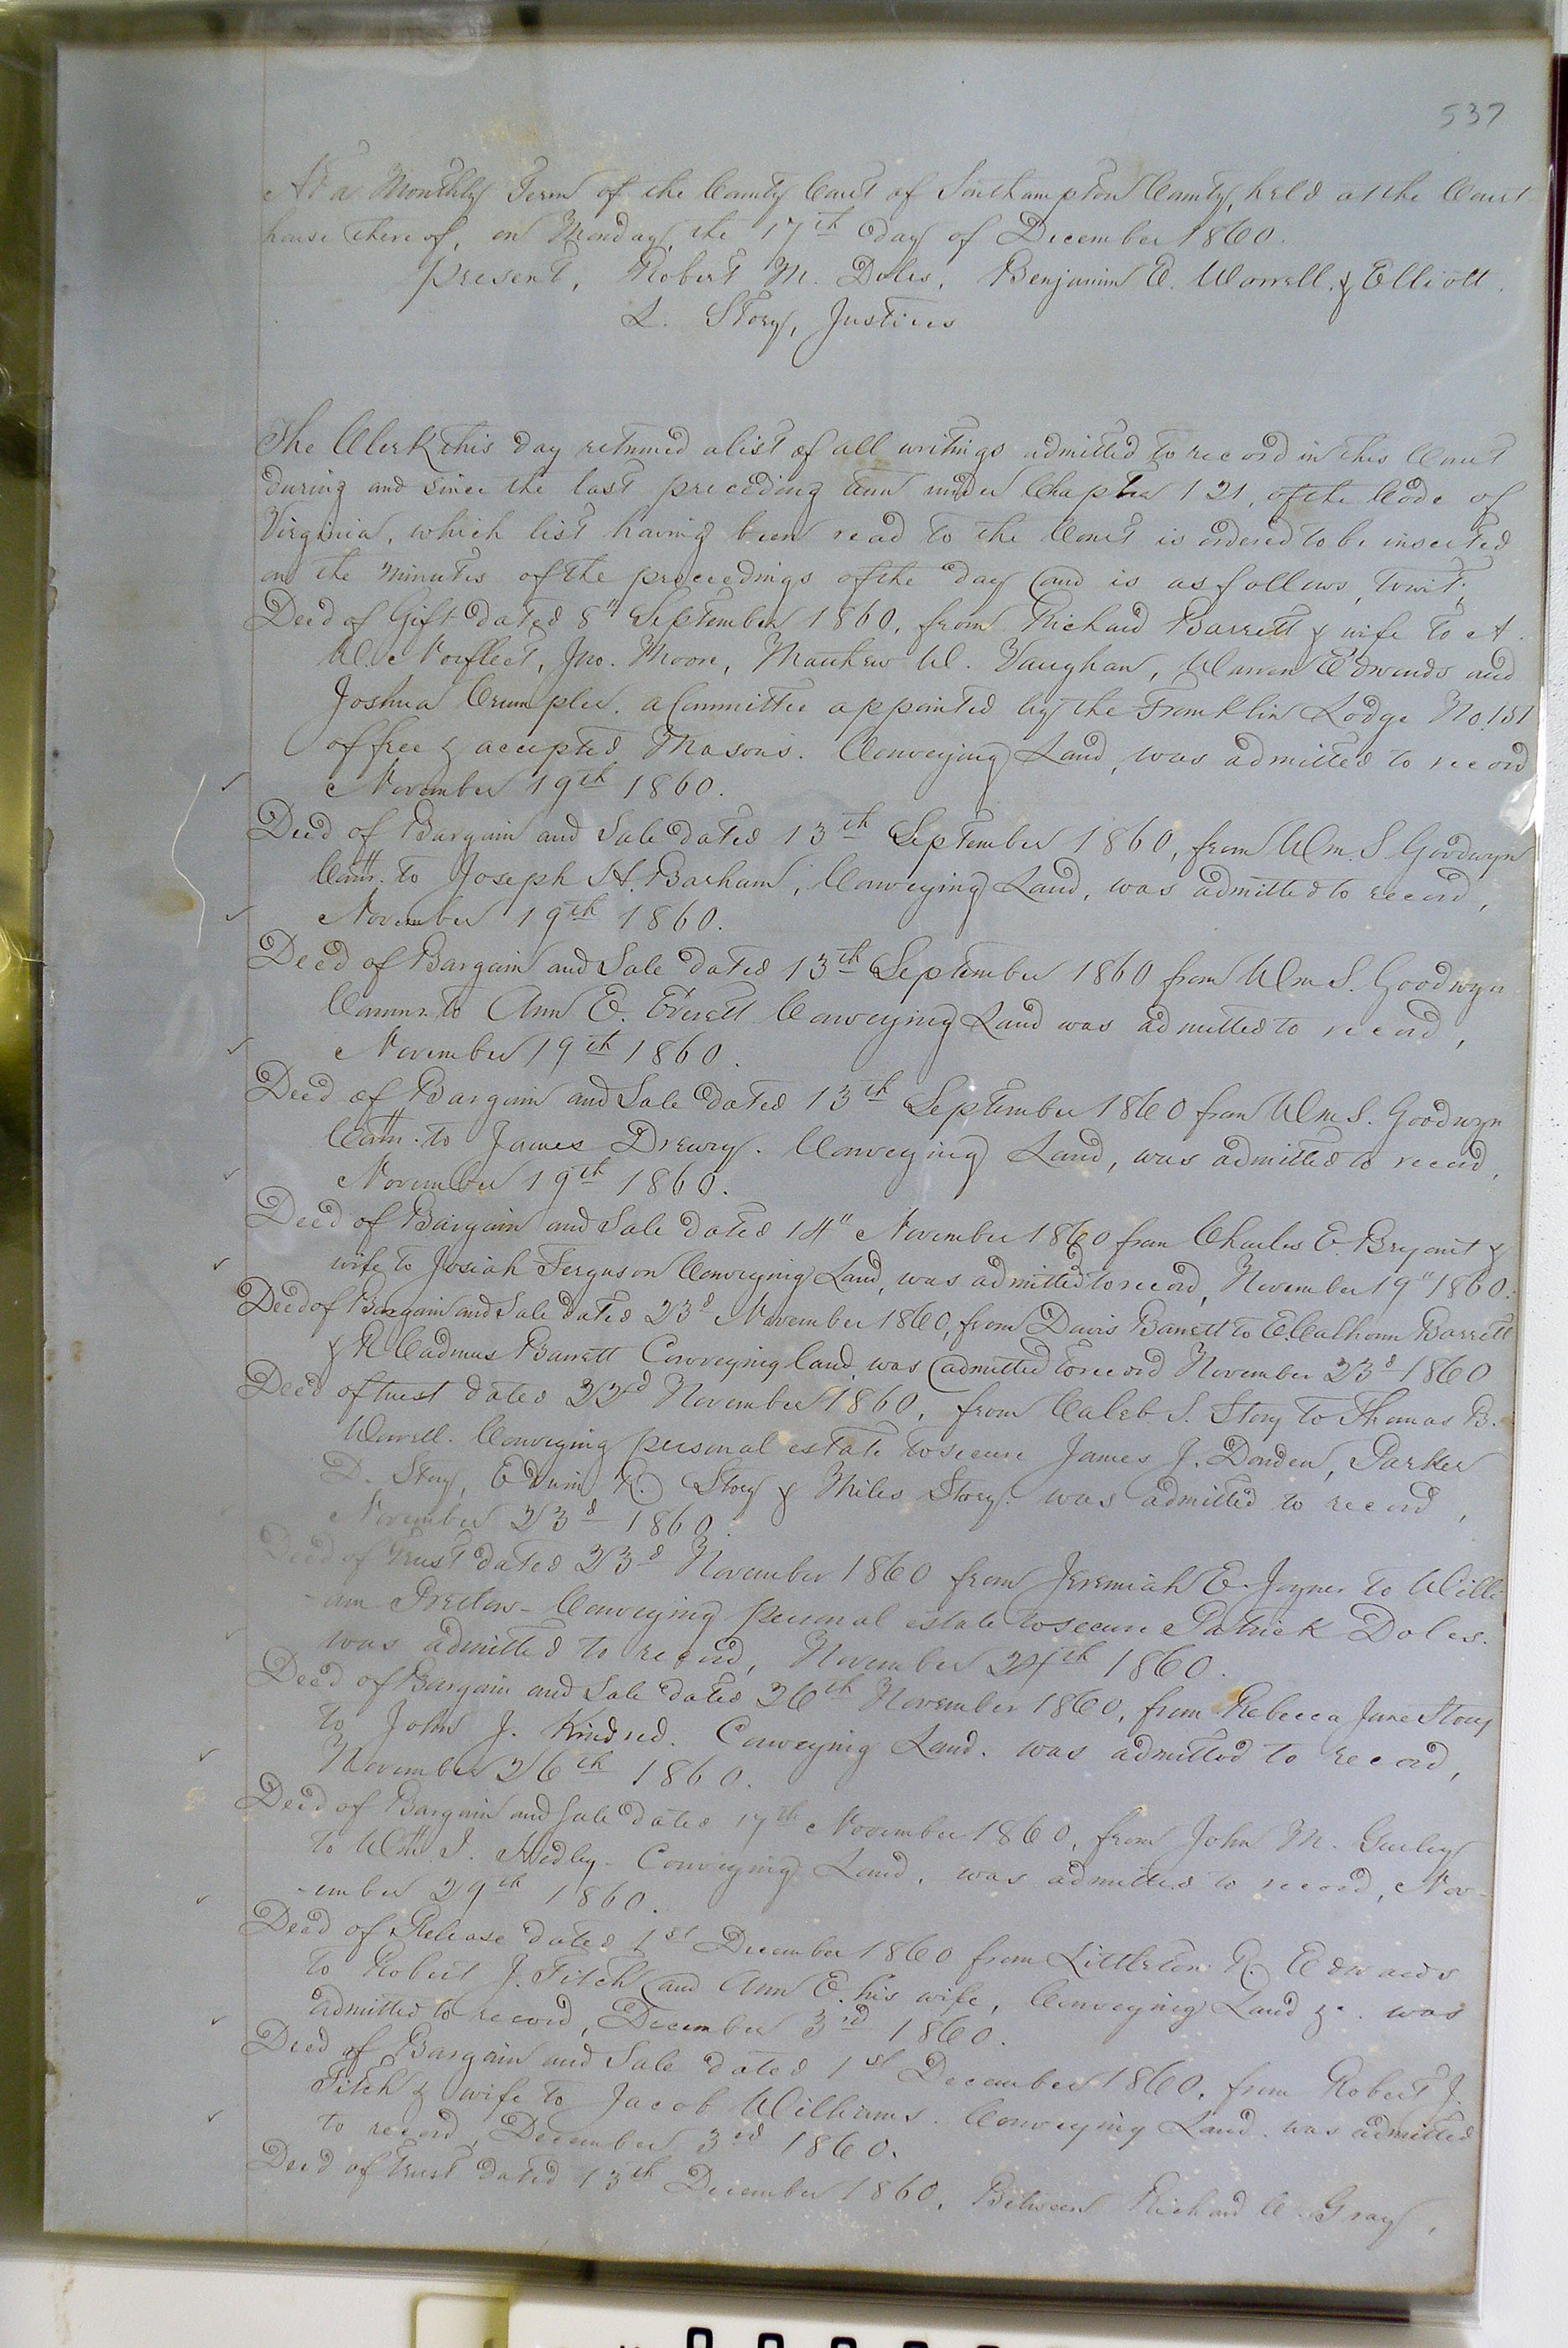 537
At a Monthly Term of the County Court of Southampton County, held at the Court
house thereof, on Monday, the 17th day of December 1860.
Present, Robert M. Doles, Benjamin E. Worrell, & Elliott
L. Story, Justices
The Clerk this day returned a list of all writings admitted to record in this Court
during and since the last preceding term under Chapter 121, of the Code of
Virginia, which list having been read to the Court is ordered to be inserted
on the minutes of the proceedings of the day and is as follows, towit,
Deed of Gift dated 8" September 1860, from Richard Barrett & wife to A.
W. Norfleet, Jno. Moore, Matthew W. Vaughan, Warren Edwards and
Joshua Crumpler, a Committee appointed by the Franklin Lodge No. 151
of free & accepted Masons. Conveying Land, was admitted to record
November 19th 1860.
Deed of Bargain and Sale dated 13th September 1860, from Wm. S. Goodwyn
Comr. to Joseph H. Barham, Conveying Land, was admitted to record,
November 19th 1860.
Deed of Bargain and Sale dated 13th September 1860 from Wm S. Goodwyn
Commr. to Ann E. Everett Conveying Land was admitted to record,
November 19th 1860.
Deed of Bargain and Sale dated 13th September 1860 from Wm S. Goodwyn
Comr. to James Drewry. Conveying Land, was admitted to record,
November 19th 1860.
Deed of Bargain and Sale dated 14" November 1860 from Charles E. Bryant &
wife to Josiah Ferguson Conveying Land, was admitted to record, November 19" 1860.
Deed of Bargain and Sale dated 23d November 1860, from Davis Barrett to E. Calhoun Barrett
& R Cadmus Barrett Conveying land, was admitted to record November 23d 1860
Deed of trust dated 22d November 1860, from Caleb S. Story to Thomas B.
Worrell. Conveying personal estate to secure James J. Darden, Parker
D. Story, Edwin R. Story & Miles Story. was admitted to record,
November 23d 1860.
Deed of Trust dated 23d November 1860 from Jeremiah E. Joyner to Willi-
-am Pretlow - Conveying personal estate to secure Patrick Doles.
was admitted to record, November 24th 1860.
Deed of Bargain and Sale dated 26th November 1860, from Rebecca Jane Story
to John J. Kindred. Conveying Land. was admitted to record,
November 26th 1860.
Deed of Bargain and Sale dated 17th November 1860, from John M. Gurley
to Wm. J. Conveying Land, was admitted to record, Nov-
-ember 29th 1860.
Deed of Release dated 1st December 1860 from Littleton R. Edwards
to Robert J. Fitch and Ann E. his wife, Conveying Land &c. was
admitted to record, December 3rd 1860.
Deed of Bargain and Sale dated 1st December 1860, from Robert J.
Fitch & wife to Jacob Williams. Conveying Land. was admitted
to record, December 3rd 1860.
Deed of Trust dated 13th December 1860, Between Richard C. Gray,